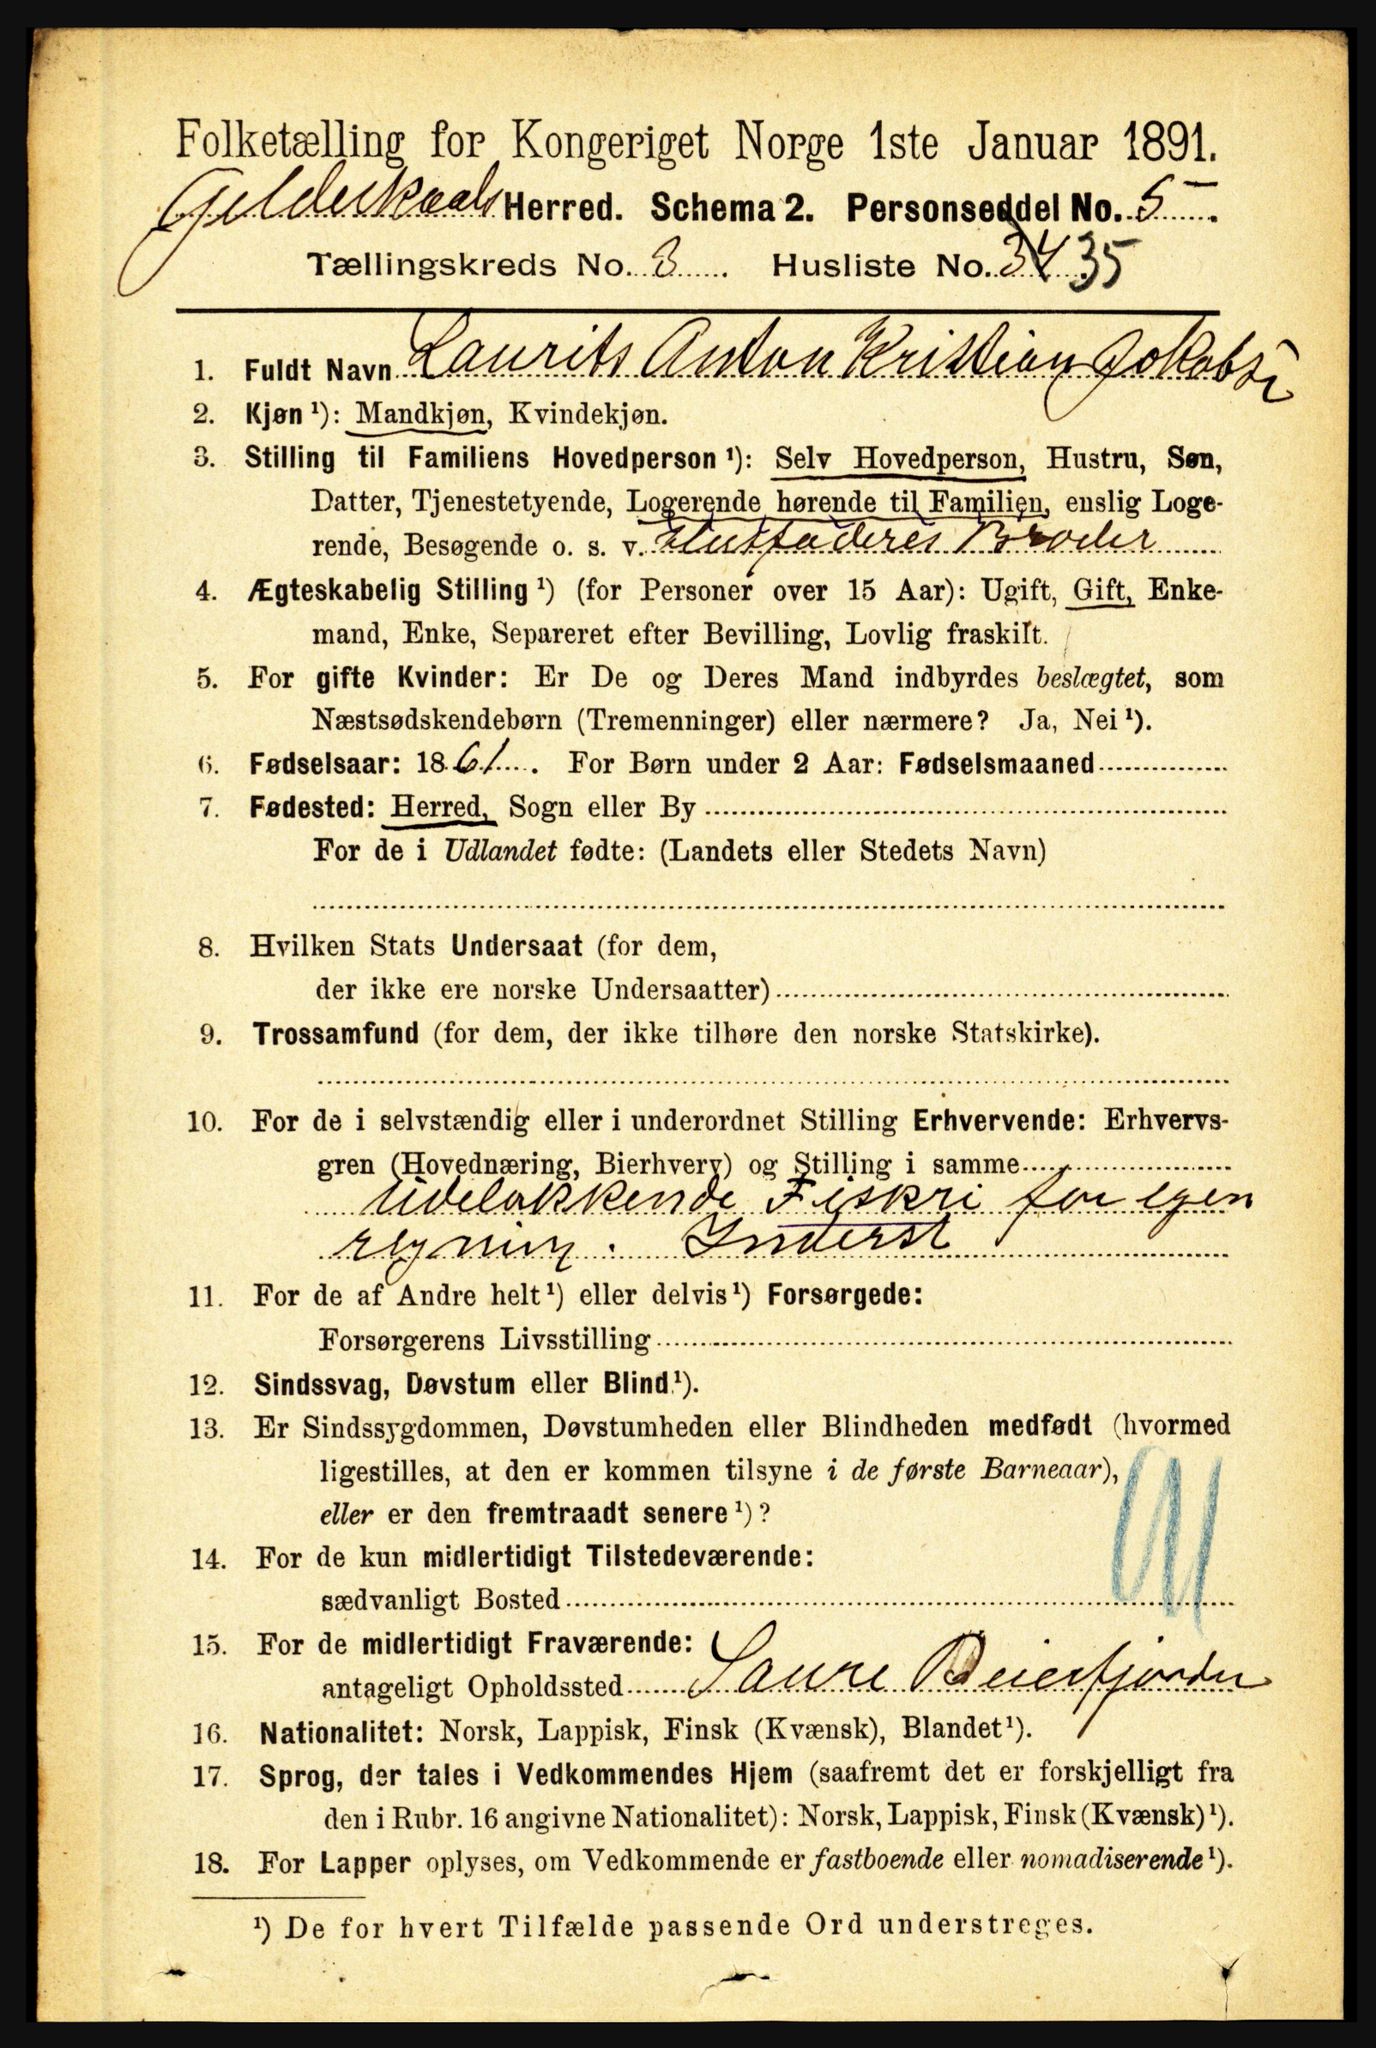 Folketælling for Kongeriget Norge 1ste Januar 1891.
Gilderskaals Herred. Schema 2. Personseddel No. 5
Tællingskreds No. 3. Husliste No. 34 35
1. Fuldt Navn Laurits Anton Kristian Jokobs
2. Kjøn ¹): Mandkjøn, Kvindekjøn.
3. Stilling til Familiens Hovedperson ¹): Selv Hovedperson, Hustru, Søn,
Datter, Tjenestetyende, Logerende hørende til Familien, enslig Loge-
rende, Besøgende o. s. v. Husfaderes Broder
4. Ægteskabelig Stilling ¹) (for Personer over 15 Aar): Ugift, Gift, Enke-
mand, Enke, Separeret efter Bevilling, Lovlig fraskilt.
5. For gifte Kvinder: Er De og Deres Mand indbyrdes beslægtet, som
Næstsødskendebørn (Tremenninger) eller nærmere? Ja, Nei ¹).
6. Fødselsaar: 1861. For Børn under 2 Aar: Fødselsmaaned
7. Fødested: Herred, Sogn eller By
For de i Udlandet fødte: (Landets eller Stedets Navn)
8. Hvilken Stats Undersaat (for dem,
der ikke ere norske Undersaatter)
9. Trossamfund (for dem, der ikke tilhøre den norske Statskirke).
10. For de i selvstændig eller i underordnet Stilling Erhvervende: Erhvervs-
gren (Hovednæring, Bierhverv) og Stilling i samme
Udelukkende Fiskri for egen
regning. Inderst
11. For de af Andre helt ¹) eller delvis ¹) Forsørgede:
Forsørgerens Livsstilling
12. Sindssvag, Døvstum eller Blind ¹).
13. Er Sindssygdommen, Døvstumheden eller Blindheden medfødt (hvormed
ligestilles, at den er kommen tilsyne i de første Barneaar),
eller er den fremtraadt senere ¹)?
14. For de kun midlertidigt Tilstedeværende:
sædvanligt Bosted
15. For de midlertidigt Fraværende:
antageligt Opholdssted Saure Beierfjorden
16. Nationalitet: Norsk, Lappisk, Finsk (Kvænsk), Blandet ¹).
17. Sprog, der tales i Vedkommendes Hjem (saafremt det er forskjelligt fra
den i Rubr. 16 angivne Nationalitet): Norsk, Lappisk, Finsk (Kvænsk) ¹).
18. For Lapper oplyses, om Vedkommende er fastboende eller nomadiserende ¹).
¹) De for hvert Tilfælde passende Ord understreges.